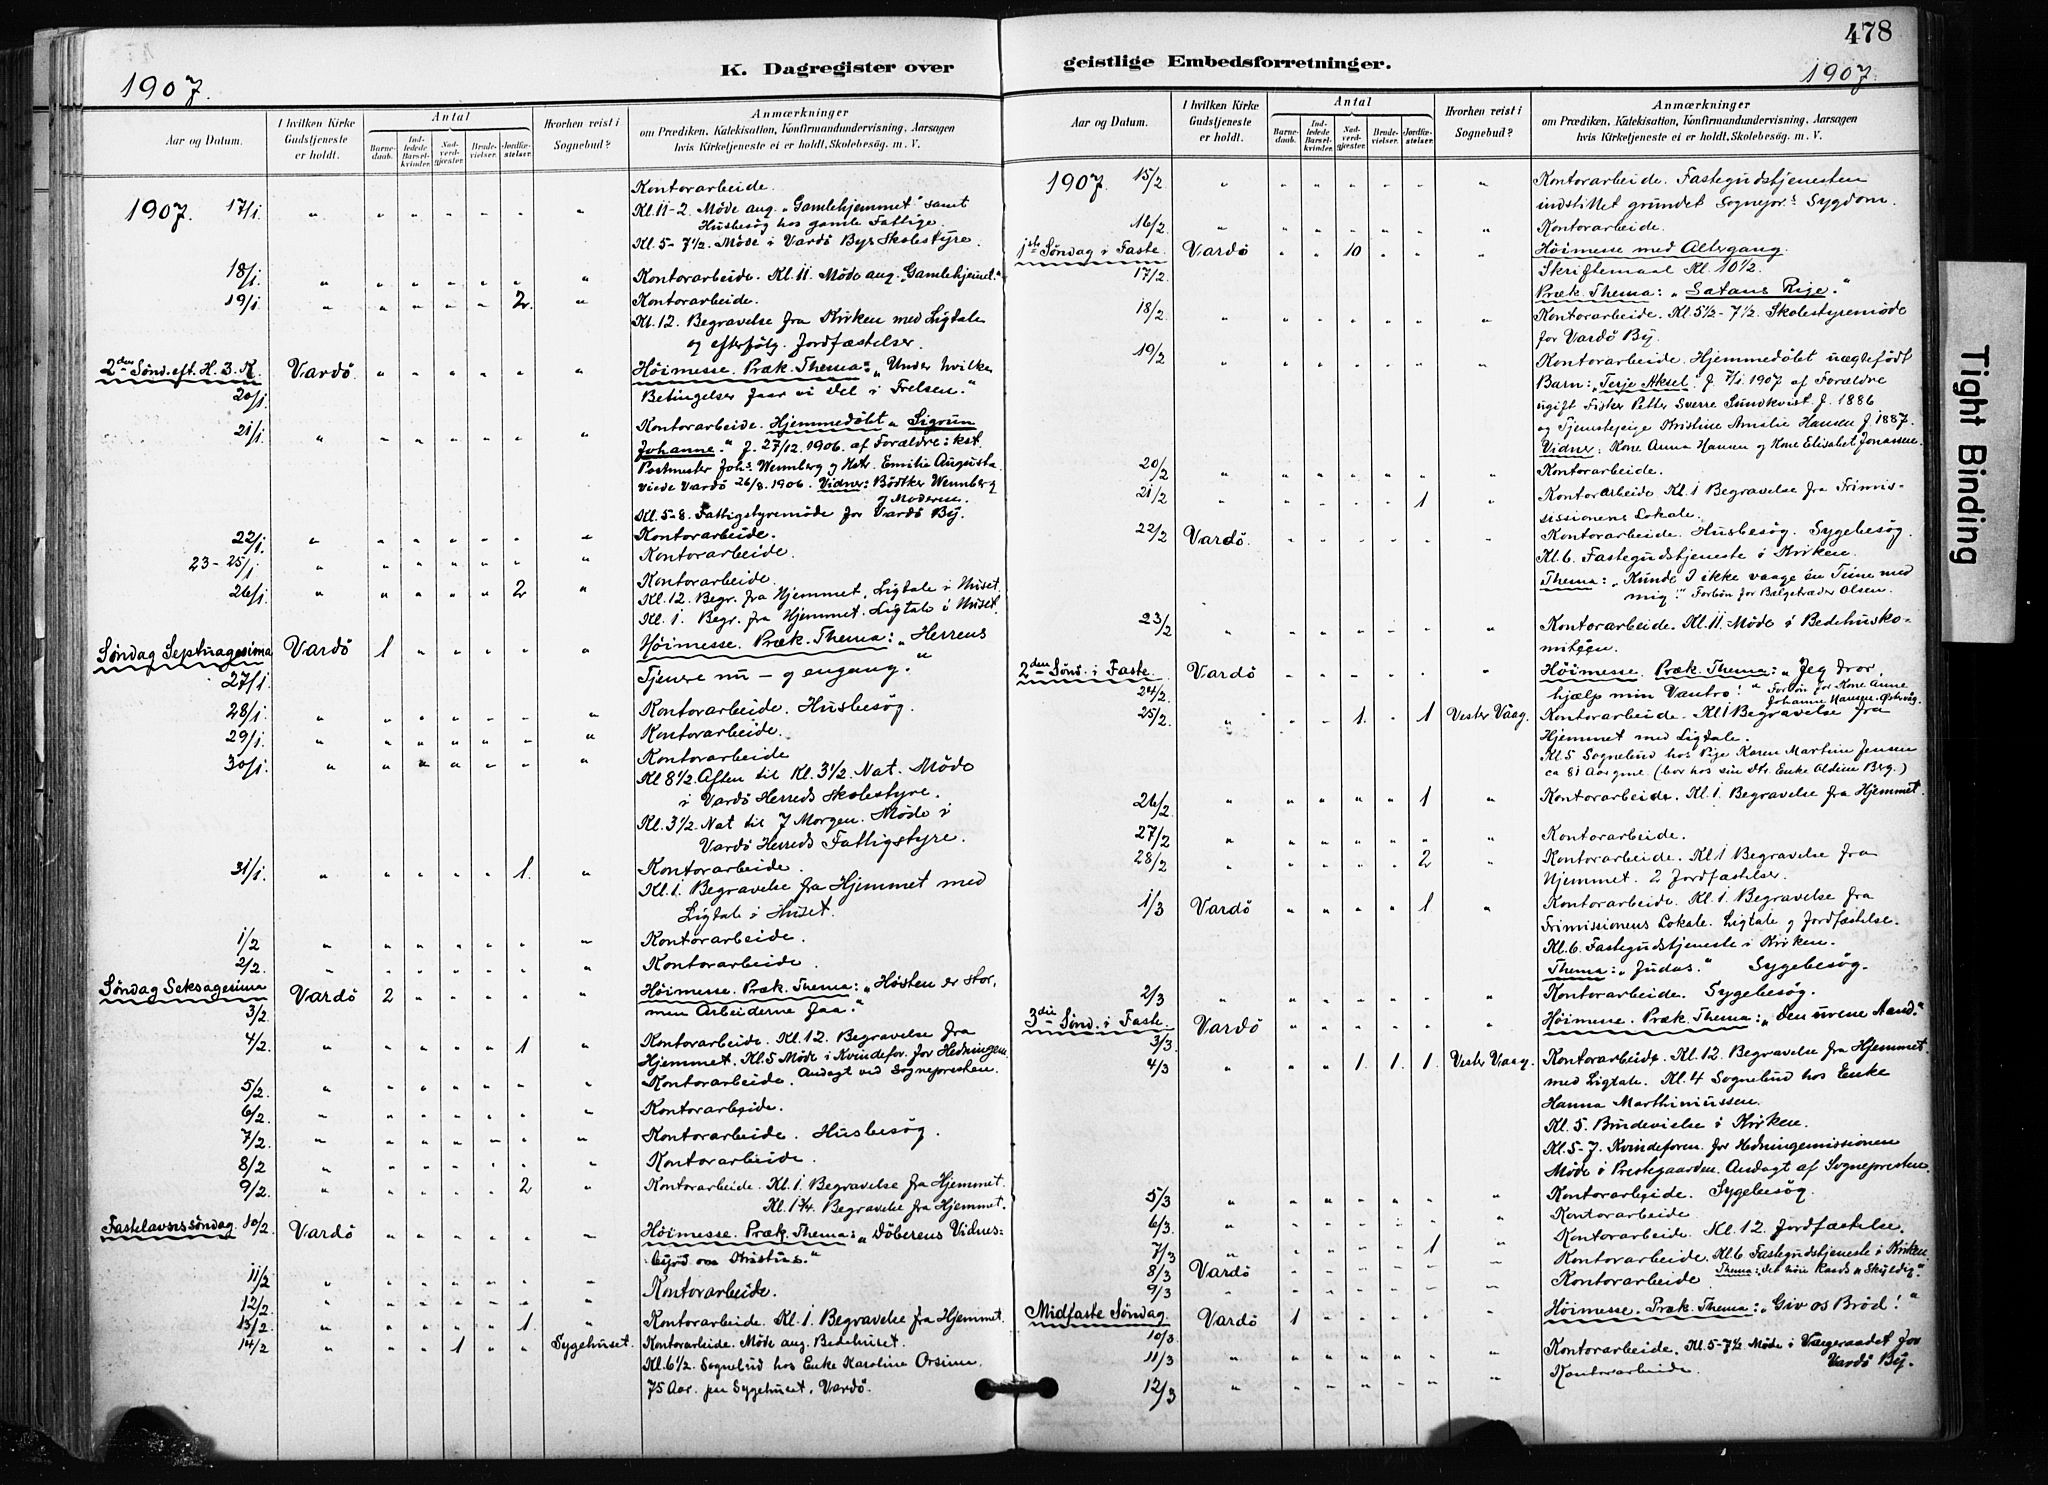 478
K. Dagregister over
geistlige Embedsforretninger.
1907.
1907.
Aar og Datum.
I hvilken Kirke Gudstjeneste er holdt.
Antal
Barnedaab.
Indledede Barselkvinder.
Nadverdgjester.
Brudevielser.
Jordfæstelser.
Hvorhen reist i Sognebud?
Anmærkninger
om Prædiken, Katekisation, Konfirmandundervisning, Aarsagen
hvis Kirketjeneste ei er holdt, Skolebesøg. m. V.
Kontorarbeide.
1907. 17/1. " " " " " " " Kl. 11-2. Møde ang. "Gamlehjemmet" samt
Husbesøg hos gamle Fattige.
Kl. 5-7 1/2. Møde i Vardö Bys Skolestyre.
18/1. " " " " " " " Kontorarbeide. Kl. 11 Møde ang. "Gamlehjemmet."
19/1. " " " " " 2. " Kontorarbeide.
Kl. 12. Begravelse fra Kirken med Ligtale
og efterfølg. Jordfæstelser.
2den Sønd. eft. H. 3. K. Vardö. " " " " " " Høimesse. Præk. Thema: "Under hvilke
20/1. Betingelser faar vi Del i Frelsen."
21/1. " " " " " " " Kontorarbeide. Hjemmedöbt "Sigrun
Johanne." f. 27/12.1906. af Forældre: kst.
Postmester Johs. Wennberg og Hstr. Emilie Augusta
viede Vardö 26/8.1906. Vidner: Bödtker Wennberg
og Moderen.
Kl. 5-8. Fattigstyremöde for Vardö By.
22/1. " " " " " " " Kontorarbeide.
23-25/1. " " " " " " " Kontorarbeide.
26/1. " " " " " 2 " Kontorarbeide.
Kl. 12. Begr. fra Hjemmet, Ligtale i Huset.
Kl. 1. Begr. fra Hjemmet. Ligtale i Huset.
Søndag Septuagesima Vardö 1 " " " " " Høimesse. Præk. Thema: "Herrens
27/1. Tjenere nu – og engang."
28/1. " " " " " " " Kontorarbeide. Husbesøg.
29/1. " " " " " " " Kontorarbeide.
30/1. " " " " " " " Kontorarbeide
Kl 8 1/2. Aften til Kl. 3 1/2. Nat. Møde
i Vardö Herreds Skolestyre.
Kl. 3 1/2. Nat til 7 Morgen. Møde i
Vardö Herreds Fattigstyre.
31/1. " " " " " 1. " Kontorarbeide.
Kl. 1. Begravelse fra Hjemmet med
Ligtale i Huset.
1/2 " " " " " " " Kontorarbeide.
2/2. " " " " " " " Kontorarbeide.
Søndag Seksagesima Vardö 2 " " " " " Høimesse. Præk. Thema: "Høsten er stor,
3/2. men Arbeiderne faa."
4/2. " " " " " 1 " Kontorarbeide. Kl. 12. Begravelse fra
Hjemmet. Kl. 5 Møde i Kvindefor. for Hedningem.
Andagt ved Sognepresten.
5/2. " " " " " " " Kontorarbeide.
6/2. " " " " " " " Kontorarbeide.
7/2. " " " " " " " Kontorarbeide. Husbesøg.
8/2 " " " " " " " Kontorarbeide.
9/2. " " " " " 2 " Kontorarbeide. Kl. 1. Begravelse fra Hjemmet.
Kl. 1 3/4. Begravelse fra Hjemmet.
Fastelavnssöndag. 10/2. Vardö " " " " " " Høimesse. Præk. Thema: "Döberens Vidnes-
byrd om Kristus."
11/2 " " " " " " " Kontorarbeide.
12/2. " " " " " " "
13/2. " " " " " 1. " Kontorarbeide. Kl. 1. Begravelse fra Hjemmet.
14/2 " " " 1 " " Sygehuset. Kontorarbeide. Møde ang. Bedehuset.
Kl. 6 1/2. Sognebud hos Enke Karoline Orsine.
75 Aar. paa Sygehuset, Vardö.
Aar og Datum.
I hvilken Kirke Gudstjeneste er holdt.
Antal
Barnedaab.
Indledede Barselkvinder.
Nadverdgjester.
Brudevielser.
Jordfæstelser.
Hvorhen reist i Sognebud?
Anmærkninger
om Prædiken, Katekisation, Konfirmandundervisning, Aarsagen
hvis Kirketjeneste ei er holdt, Skolebesøg. m. V.
1907. 15/2 " " " " " " " Kontorarbeide. Fastegudstjenesten
indstillet grundet Sognepr.s Sygdom.
16/2. " " " " " " " Kontorarbeide.
1ste Søndag i Faste. Vardö " " 10 " " " Høimesse med Altergang.
17/2. Skriftemaal Kl. 10 1/2.
Præk. Thema: "Satans Rige."
18/2. " " " " " " " Kontorarbeide. Kl. 5 1/2-7 1/2. Skolestyremøde
for Vardö By.
19/2. " " " " " " " Kontorarbeide. Hjemmedöbt uægtefödt
Barn: "Terje Aksel". f. 7/1.1907 af Forældre
ugift Fisker Petter Sverre Sundkvist. f. 1886
og Tjenestepige Kristine Amalie Hansen f. 1887.
Vidner: Kone Anna Hansen og Kone Elisabet Jonassen.
20/2 " " " " " " " Kontorarbeide.
21/2 " " " " " 1 " Kontorarbeide. Kl. 1 Begravelse fra Frimis-
sissionens Lokale.
22/2 Vardö. " " " " " " Kontorarbeide. Husbesøg. Sygebesøg.
Kl. 6. Fastegudstjeneste i Kirken.
Thema: "Kunde I ikke vaage en Time med
mig!" Forbön for Bælgetræder Olsen.
23/2 " " " " " " " Kontorarbeide. Kl. 11. Møde i Bedehusko-
miteen.
2den Sønd. i Faste. Vardö " " " " " " Høimesse. Præk. Thema: "Jeg tror,
24/2. hjælp min Vantro!" Forbön for Kone Anne
Johanne Hansen, Østervåg.
25/2. " " " 1. " 1 Vester Våag. Kontorarbeide. Kl 1 Begravelse fra
Hjemmet med Ligtale.
Kl. 5 Sognebud hos Pige Karen Martine Jensen
ca 81 Aar gml. (bor hos sin dtr. Enke Oldine Berg.)
26/2. " " " " " 1 " Kontorarbeide. Kl. 1. Begravelse fra Hjemmet.
27/2 " " " " " " " Kontorarbeide.
28/2 " " " " " 2 " Kontorarbeide. Kl 1 Begravelse fra
Hjemmet. 2 Jordfæstelser.
1/3 Vardö " " " " 1 " Kontorarbeide. Kl. 1. Begravelse fra
Frimissionens Lokale. Ligtale og Jordfæstelse.
Kl. 6. Fastegudstjeneste i Kirken.
Thema: "Judas." Sygebesøg.
2/3 " " " " " " " Kontorarbeide. Sygebesøg.
3die Sønd. i Faste Vardö " " " " " " Høimesse. Præk. Thema: "Den urene Aand."
3/3.
4/3 " " " 1. 1. 1. Vester Vaag. Kontorarbeide. Kl. 12. Begravelse fra Hjemmet.
med Ligtale. Kl. 4 Sognebud hos Enke
Hanna Marthiniussen.
Kl. 5. Brudevielse i Kirken.
Kl. 5-7. Kvindeforen. for Hedningemissionen
Møde i Prestegaarden. Andagt af Sognepresten.
5/3 " " " " " " " Kontorarbeide. Sygebesøg.
6/3. " " " " " " " Kontorarbeide.
7/3 " " " " " 1 " Kontorarbeide. Kl. 12. Jordfæstelse.
8/3 Vardö " " " " " " Kontorarbeide. Kl. 6 Fastegudstjeneste i Kirken.
Thema: det höie Raads "Skyldig".
9/3 " " " " " " " Kontorarbeide
Midfaste Søndag. Vardö 1 " " " " " Høimesse. Præk. Thema: "Giv os Bröd!"
10/3.
11/3 " " " " " " " Kontorarbeide. Kl. 5-7 1/2 Møde i Vægeraadet for
Vardö By.
12/3 " " " " " " " Kontorarbeide.
Tight Binding